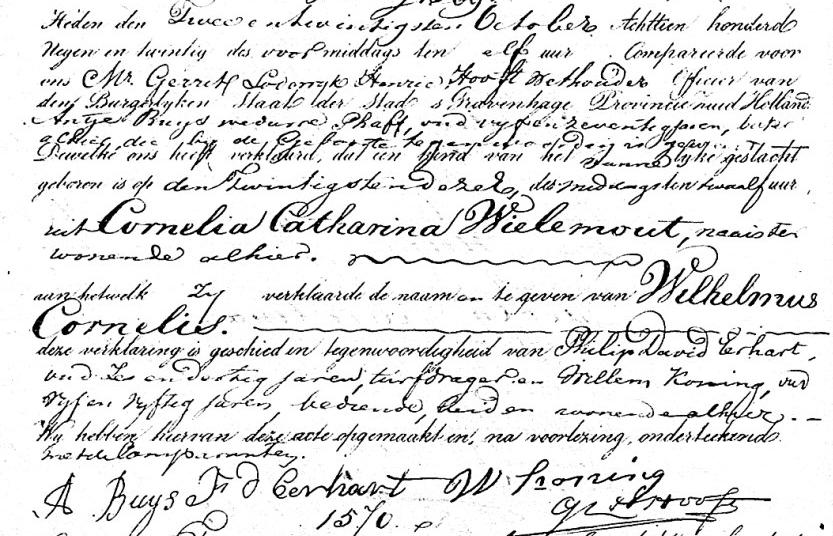 Heden den Twee en twintigsten October Achttien honderd
Negen en twintig des voormiddags ten elf uur Compareerde voor
ons Mr. Gerrit Lodewyk Henric Hooft Wethouder Officier van
den Burgerlyken Staat der Stad s Gravenhage Provincie zuid Holland
Antje Buys weduwe Phaff, oud vyf en zeventig Jaren,
die by de Geboorte tegenwoordig is geweest
Dewelke ons heeft verklaard, dat een kind van het Mannelyke geslacht
geboren is op den Twintigsten dezer, des middags ten twaalf uur,
uit Cornelia Catharina Wielemout, naaister
wonende alhier.
aan hetwelk Zy verklaarde de naamen te geven van Wilhelmus
Cornelis.
deze verklaring is geschied in tegenwoordigheid van Philip David Erhart,
oud Zes en dertig Jaren, turfdrager en Willem Koning, oud
Vyf en Vyftig Jaren, bediende, beiden wonende alhier.
Wy hebben hiervan deze acte opgemaakt en, na voorlezing, onderteekend
met de Comparanten.
A Buys F D Eerhart W Koning
GLH Hooft
1570.